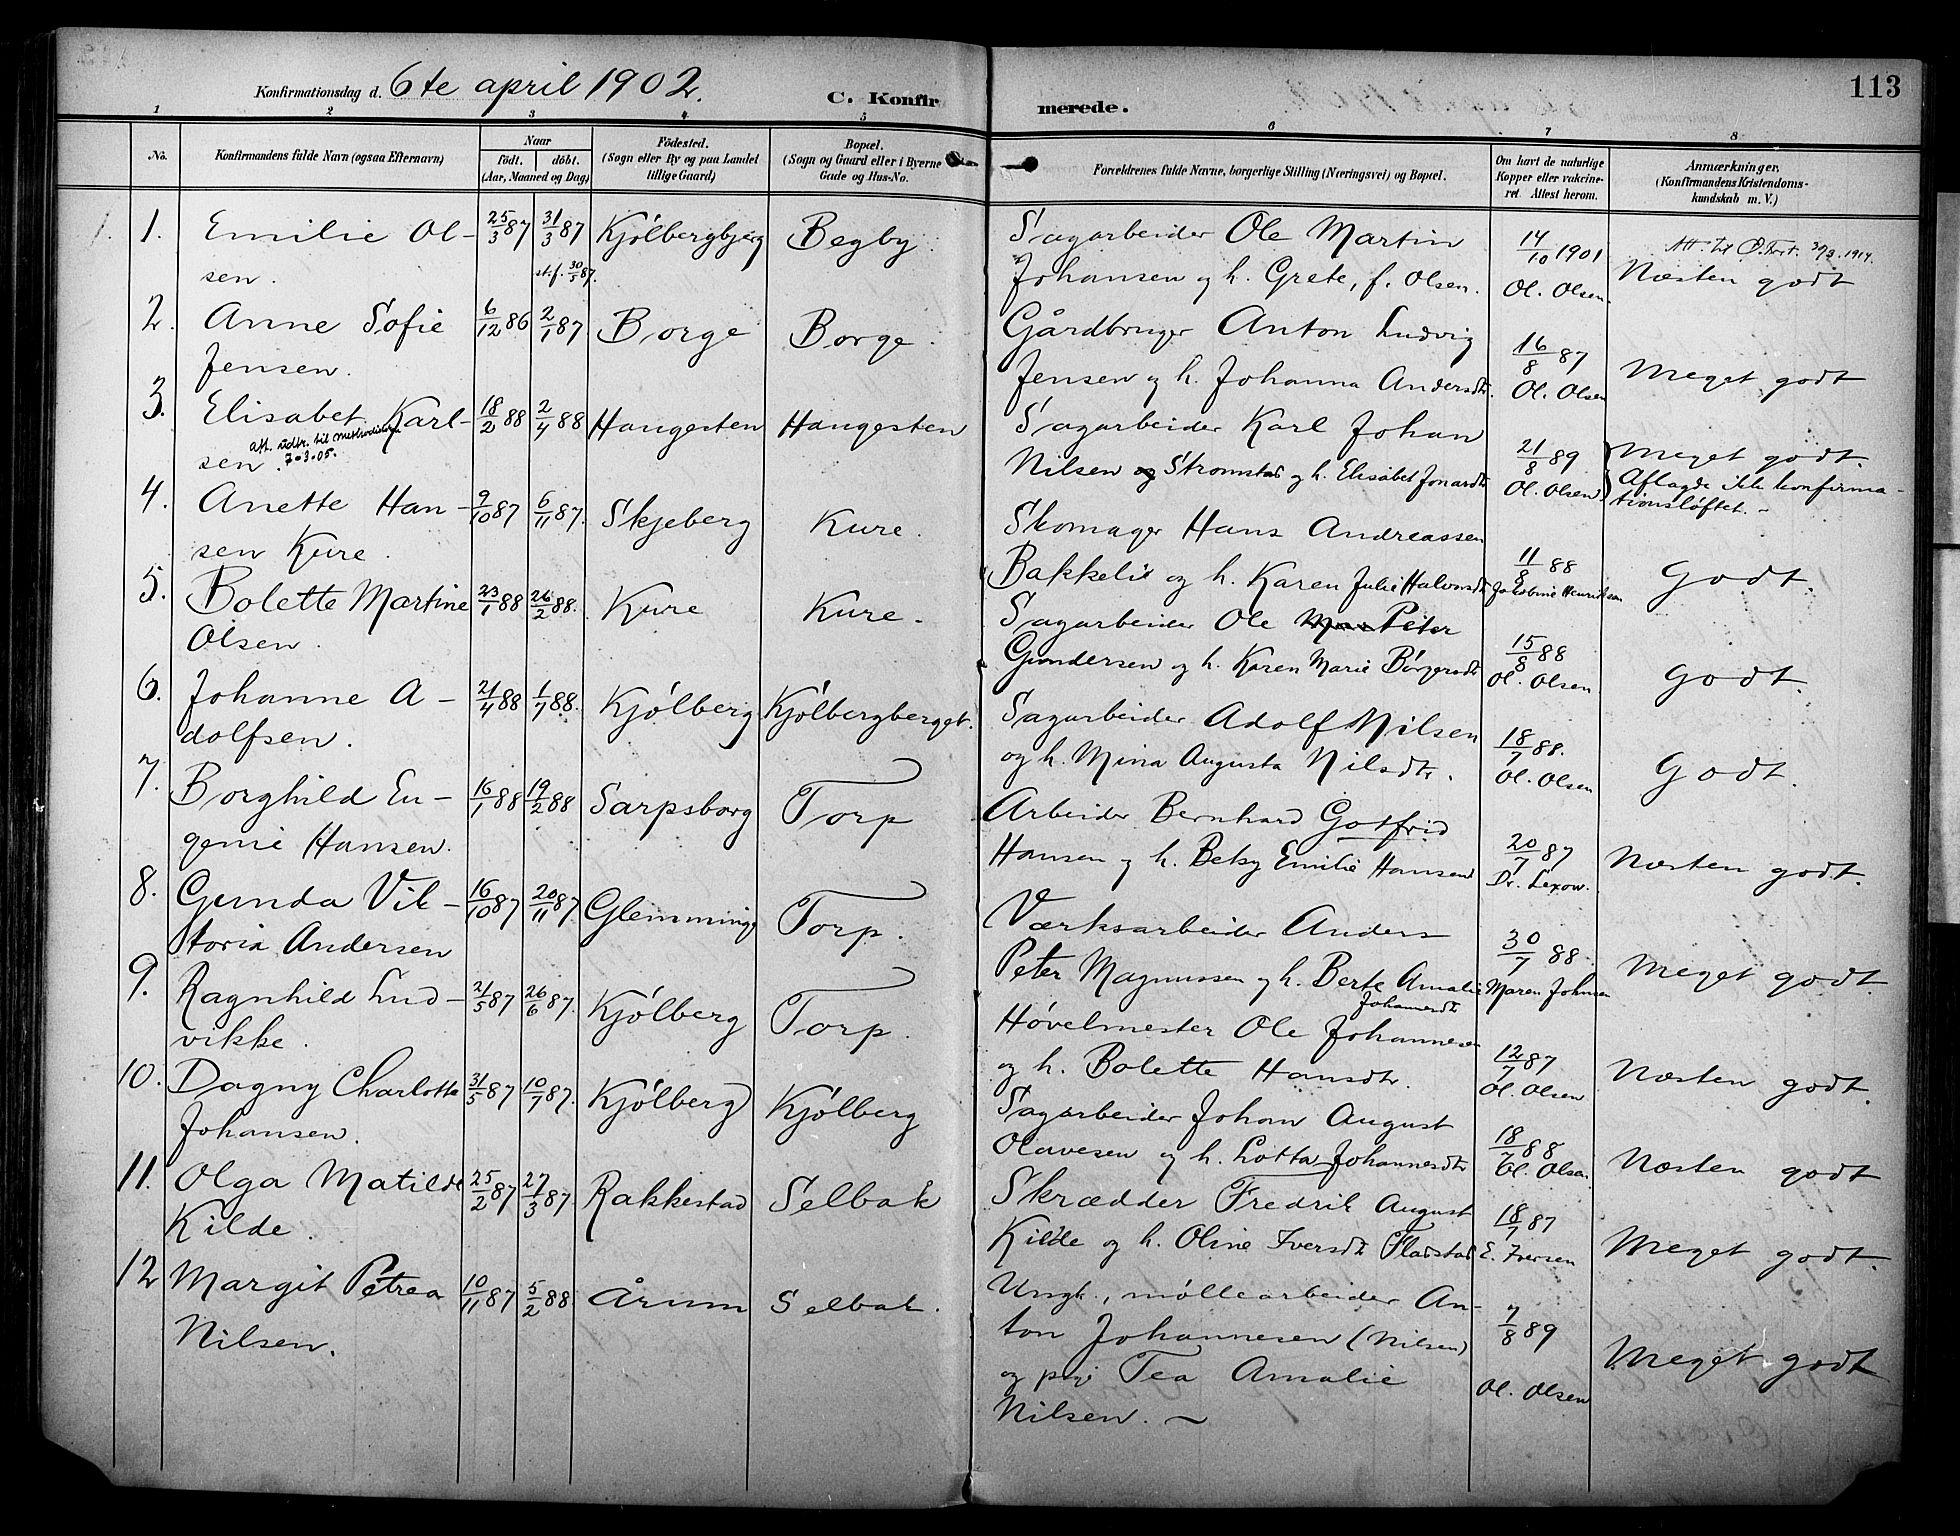 113
Konfirmationsdag d. 6te april 1902.
C. Konfirmerede.
1 2 3 4 5 6 7 8
No.
Konfirmandens fulde Navn (ogsaa Efternavn)
Naar
födt. döbt.
(Aar, Maaned og Dag)
Födested.
(Sogn eller By og paa Landet
tillige Gaard)
Bopæl.
(Sogn og Gaard eller i Byerne
Gade og Hus-No.
Forældrenes fulde Navne, borgerlige Stilling (Næringsvei) og Bopæl.
Om havt de naturlige
Kopper eller vakcine-
ret. Attest herom.
Anmærkninger.
(Konfirmandens Kristendoms-
kundskab m. V.)
1. 1. Emilie Ol- 25/3 87 31/3 87 Kjölbergbjerg Begby. Sagarbeider Ole Martin 14/10 1901
sen. st.f. 30/5 87. Johansen og h. Grete, f. Olsen. Ol. Olsen. Næsten godt
2. Anne Sofie 6/12 86 2/1 87 Borge Borge. Gårdbruger Anton Ludvig 16/8 87
Jensen. Jensen og h. Johanna Andersdtr. Ol. Olsen Meget godt
3. Elisabet Karl- 18/2 88 2/4 88 Haugesten Haugesten Sagarbeider Karl Johan 21/8 89 Meget godt.
att. udtr. til methodistern
7-3-05.
sen. Nilsen Strømstad og h. Elisabet Jonasdtr Ol. Olsen Aflagde ikke konfirma-
tionsløftet. -
4. Anette Han- 9/10 87 6/11 87. Skjeberg Kure. Skomager Hans Andreassen 11/8 88
sen Kure. Bakkeli og h. Karen Julie Halvorsdtr Jakobine Henriksen Godt.
5. Bolette Martine 23/1 88 26/2 88. Kure Kure. Sagarbeider Ole Peter 15/8 88
Olsen. Gundersen og h. Karen Marie Börgersdtr Ol. Olsen. Godt.
6. Johanne A- 21/4 88 1/7 88. Kjölberg Kjölbergberget. Sagarbeider Adolf Nilsen 18/7 88.
dolfsen. og h. Mina Augusta Nilsdtr. Ol. Olsen Godt.
7. Borghild Eu- 16/1 88 19/2 88 Sarpsborg Torp Arbeider Bernhard Gotfrid 20/7 87
genie Hansen. Hansen og h. Betsy Emilie Hansen Dr. Lexow. Næsten godt.
8. Gunda Vik- 16/10 87 20/11 87 Glemminge Torp. Værksarbeider Anders 30/7 88.
toria Andersen Peter Magnussen og h. Berte Amalie Maren Johnsen Meget godt.
Johannesdtr
9. Ragnhild Lud- 21/5 87 26/6 87. Kjölberg Torp. Høvelmester Ole Johannesen 12/7 87
vikke. og h. Bolette Hansdtr. Ol. Olsen Næsten godt.
10. Dagny Charlotta 31/5 87 10/7 87. Kjölberg Kjölberg Sagarbeider Johan August 18/7 88
Johansen. Olavesen og h. Lotta Johannesdtr Ol. Olsen. Næsten godt
11. Olga Matilde 25/2 87 27/3 87 Rakkestad Selbak Skrædder Fredrik August 18/7 87
Kilde. Kilde og h. Oline Iversdtr Fladstad E. Iversen Meget godt.
12 Margit Petrea 10/11 87 5/2 88 Årum Selbak. Ungk., møllearbeider An- 7/8 89
Nilsen. ton Johannesen (Nilsen)
og pige Tea Amalie Ol. Olsen Meget godt
Nilsen. -